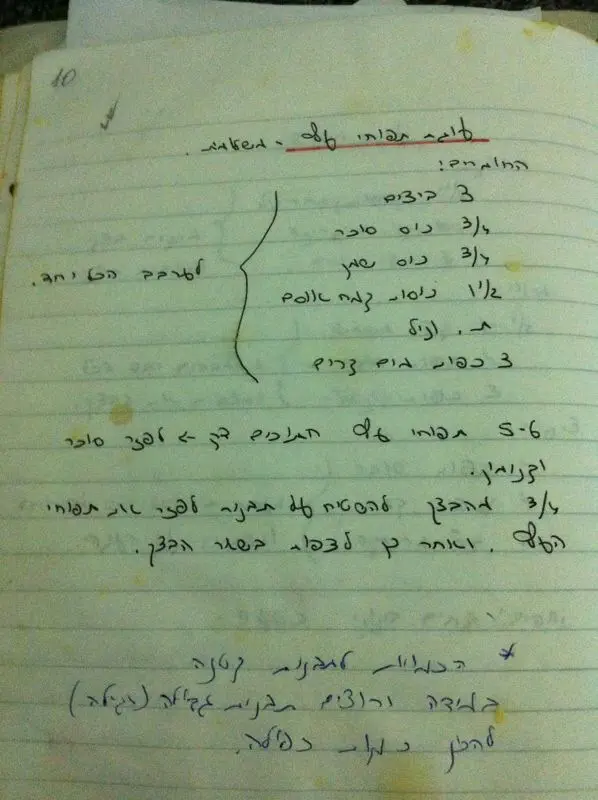 10
עוגת תפוחי עץ - מושלמת.
החומרים:
3 ביצים
3/4 כוס סוכר
3/4 כוס שמן
1 1/2 כוסות קמח אוסם
ת. וניל
3 כפות מים קרים
לערבב הכל יחד.
5-6 תפוחי עץ חתוכים דק -> לפזר סוכר
וקנמון.
3/4 מהבצק להשטיח על תבנית לפזר את תפוחי
העץ. ואחר כך לצפות בשאר הבצק.
* הכמויות לתבנית קטנה
במידה ורוצים תבנית גדולה (רגילה)
להכין כמות כפולה.